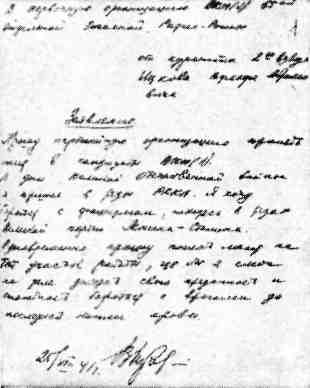 В первичную организацию ВКП(б) 
отдельной Запасной Радио-Роты
от курсанта 2го взвода
вича
Заявление
Прошу первичную организацию принять
меня в кандидаты ВКП(б).
В дни великой Отечественной войны
я пришел в ряды РККА. Я хочу
бороться с фашизмом, находясь в рядах
великой партии Ленина-Сталина.
Одновременно прошу послать меня на
тот участок работы, где бы я смог
на деле доказать свою преданность и
готовность бороться с врагами до
последней капли крови.
41г.